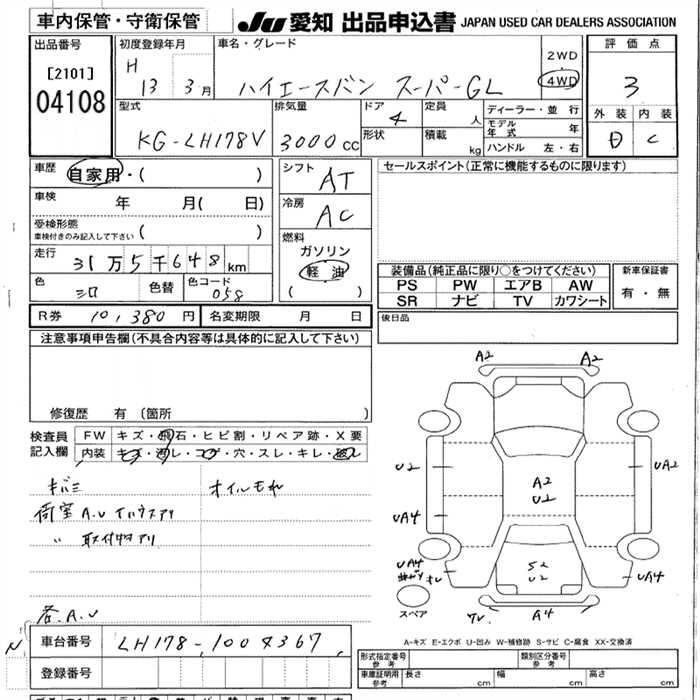 車内保管・守衛保管
JU 愛知 出品申込書 JAPAN USED CAR DEALERS ASSOCIATION
出品番号
[2101]
04108
初度登録年月
H 13 3月
車名・グレード
ハイエースバン スーパーGL
2WD
4WD
評価点
3
外装 内装
D C
型式
KG-LH178V
排気量
3000cc
ドア 4
形状
定員 人
積載 kg
ディーラー・並行
モデル年式 年
ハンドル 左・右
車歴
自家用・( )
車検
年 月( 日)
受検形態
車検付きのみ記入して下さい ( )
走行
31万5千648km
色
シロ
色替
色コード
058
シフト
AT
冷房
AC
燃料
ガソリン
軽油
( )
セールスポイント(正常に機能するものに限ります)
装備品(純正品に限り○をつけてください)
PS PW エアB AW
SR ナビ TV カワシート
新車保証書
有・無
R券 10,380円 名変期限 月 日
後日品
注意事項申告欄(不具合内容等は具体的に記入して下さい)
修復歴 有(箇所 )
検査員記入欄
FW キズ・飛石・ヒビ割・リペア跡・X要
内装 キズ・汚レ・コゲ・穴・スレ・キレ・破レ
キバミ オイルモレ
荷室 A.U
〃 取付物アリ
A.U
車台番号 LH178-1004367
登録番号
A2 A2
U2 UA2
A2
U2
UA4
UA4
曲がり
S2
U2
UA4
スペア
A4
A-キズ E-エクボ U-凹み W-補修跡 S-サビ C-腐食 XX-交換済
形式指定番号
参考
類別区分番号
参考
車庫証明用
参考
長さ cm 幅 cm 高さ cm